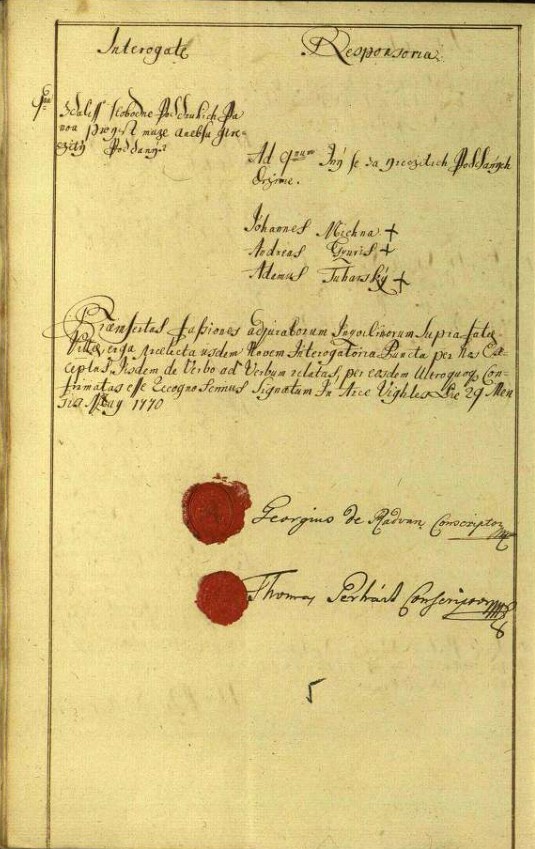 Interogate Responsoria.
9num
Slobodne Poddanich Pa
nou
Poddaný?
Ad 9num My se za Poddaných
držime.
Johannes Michna +
Andreas Gruris +
Adamus Tuharský +
Præinsertas Fassiones adjuratorum Incolinorum Supra fatæ
Villæ, erga Prælecta iisdem Novem Interogatoria Puncta per Nos Ex-
ceptas, Iisdem de Verbo ad Verbum relatas, per eosdem Utroquoq Con-
firmatas esse Recognoscimus Signatum In Arce Vighles Die 29 Men-
sis May 1770
Georgius de Radvan, Conscriptor
Thomas Perhárt Conscriptor
5